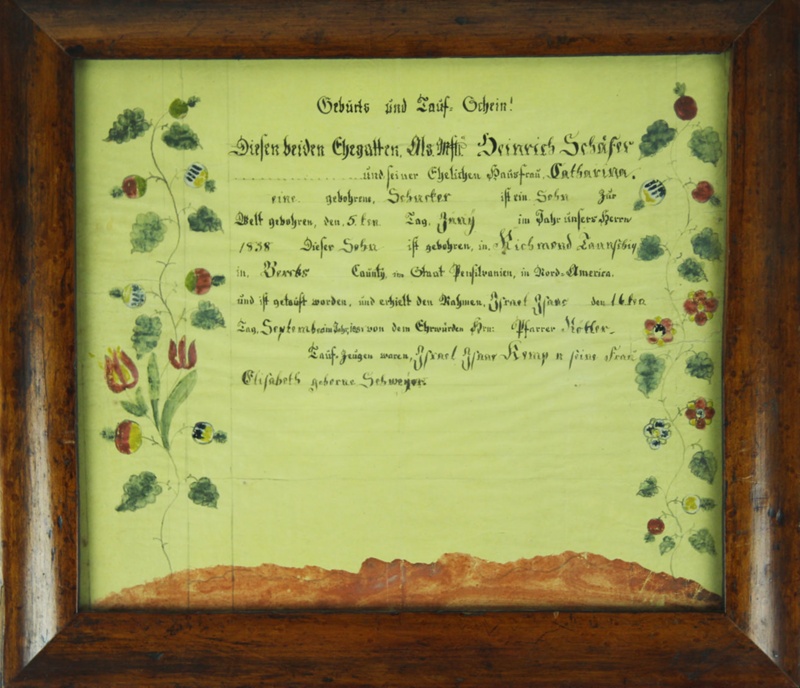 Gebúrts únd Taúf- Schein!
Diesen beiden Ehegatten, Als Heinrich Schäfer
und seiner Ehelichen Haúsfraú, Catharina,
eine gebohrene, Schucker ist ein Sohn Zúr
Welt gebohren, den 5.ten Tag, Júny im Jahr únsers Herrn
1838 Dieser Sohn ist gebohren, in Richmond Taunschip
in Bercks Caúnty, im Staat Pensilvanien, in Nord-America.
únd ist getaúft worden, únd erhielt den Nahmen, Israel Isaac den 16.ten
Tag, September von dem Ehrwúrden Hrn: Pfarrer
Taúf-zeúgen waren, Israel Isaac Kemp u seine Frau
Elisabeth geborne Schweyer